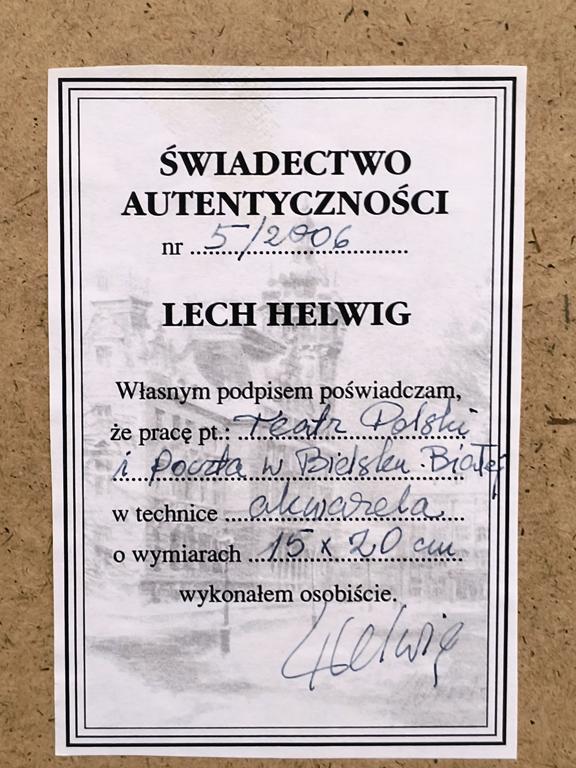 ŚWIADECTWO
AUTENTYCZNOŚCI
nr 5/2006
LECH HELWIG
Własnym podpisem poświadczam,
że pracę pt.: Teatr Polski
i poczta w Bielsku-Białej
w technice akwarela
o wymiarach 15 x 20 cm
wykonałem osobiście.
LHelwig